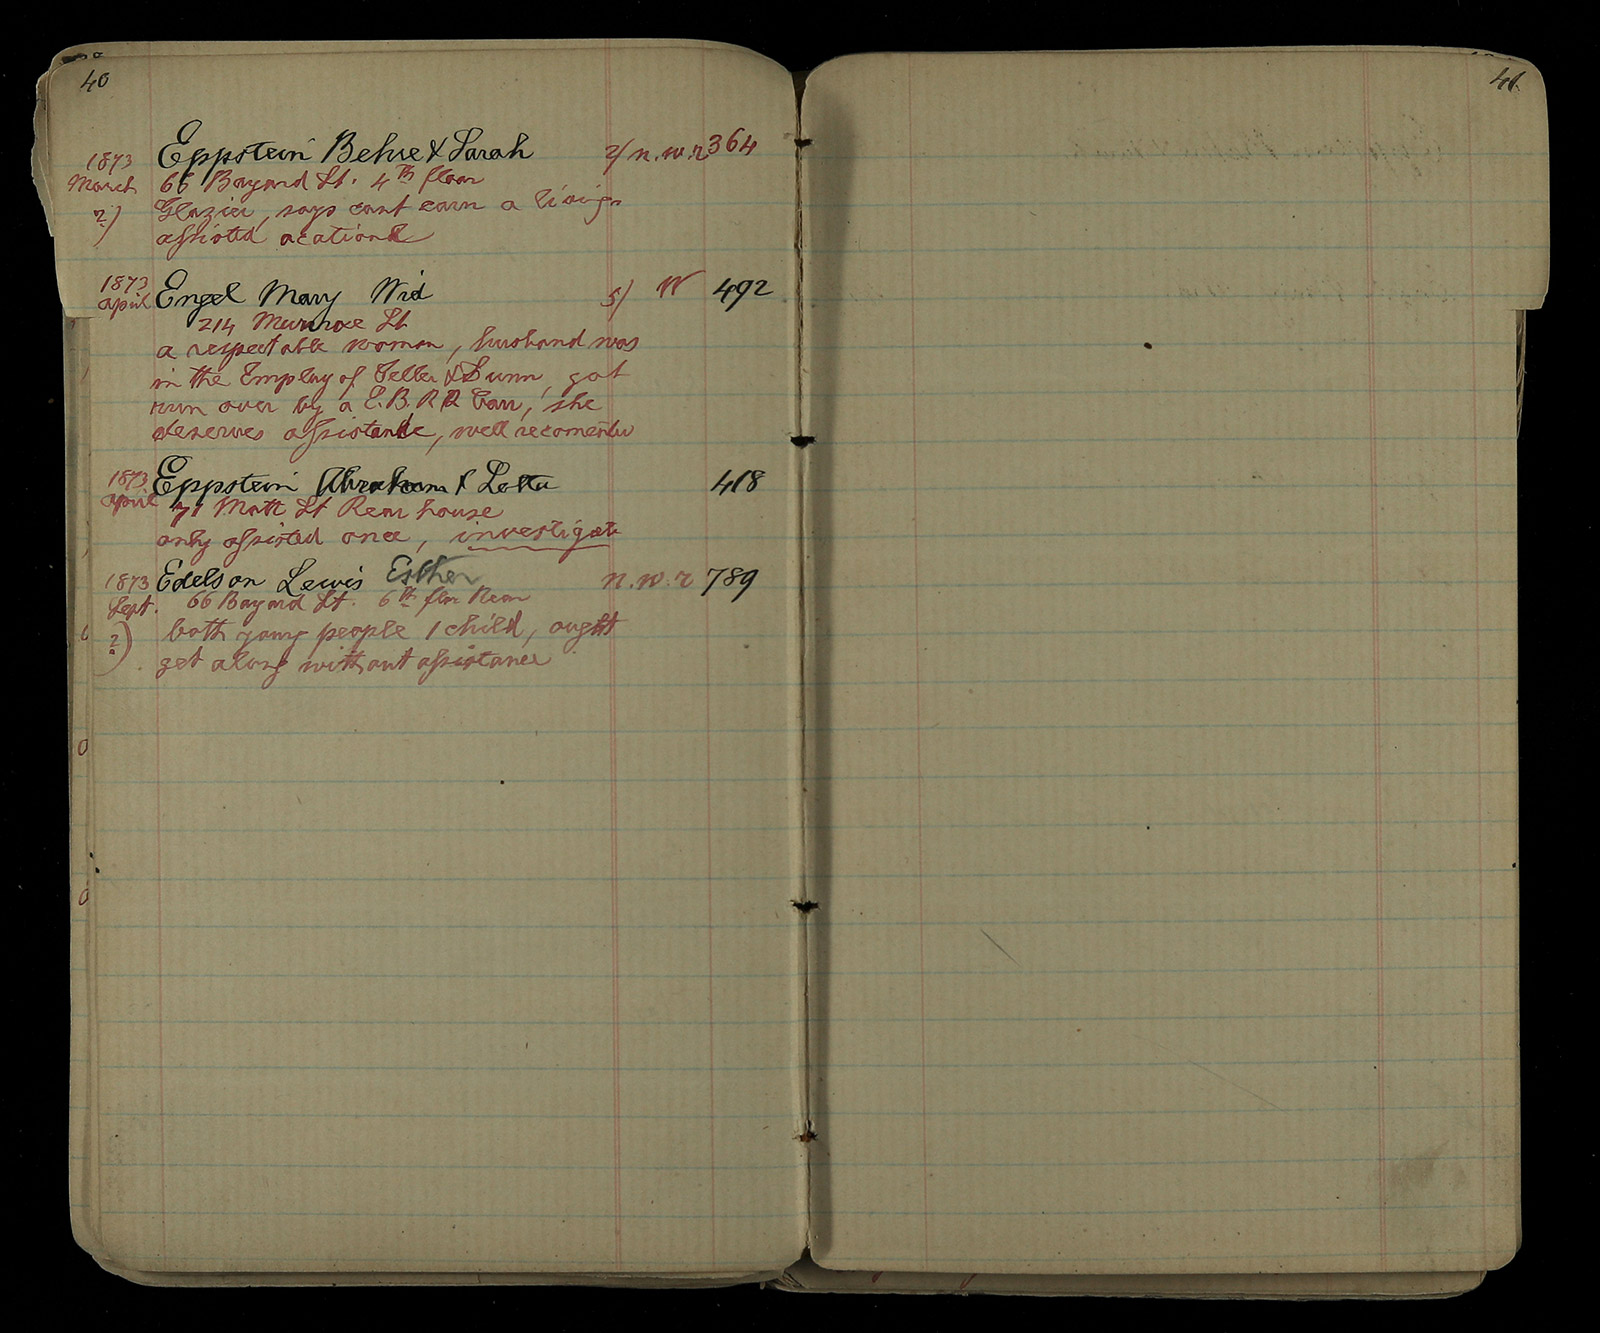 40
1873 Eppstein Behre & Sarah 2/ n.w.r 364
March 66 Bayard St. 4th floor
2) Glazier, says cant earn a living
assisted acationl
1873 Engel Mary Wid 5) W 492
April
214 Munroe St
a respectable woman, husband was
in the Employ of & got
run over by a E.B.R.R Carr, she
deserves assistance, well recomended
1873 Eppstein Abraham & Lotta 418
April 71 Mott St Rear house
only assisted once, investigate
1873 Edelson Lewis Esther n.w.r 789
Sept. 66 Bayard St. 6th flor Rear
2) both young people 1 child, ought
get along without assistance
0
0
41